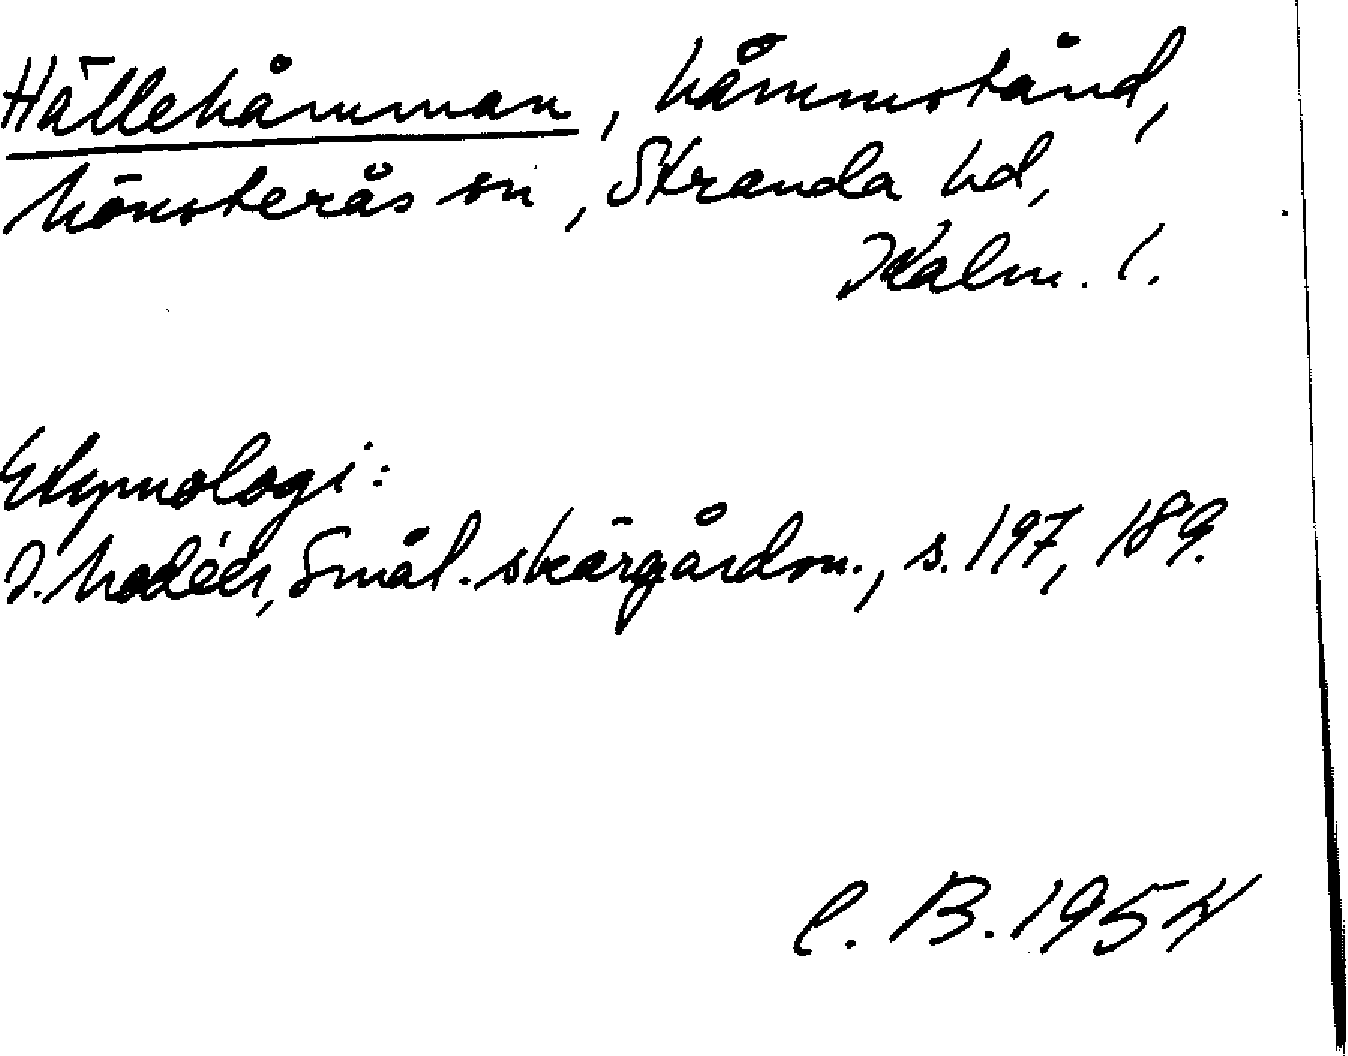 Hällehåmman, håmmstånd,
Mönsterås sn, Stranda hd,
Kalm. l.
Etymologi:
I. Modéer, Smål. skärgårdsn., s. 197, 189.
C. B. 1954